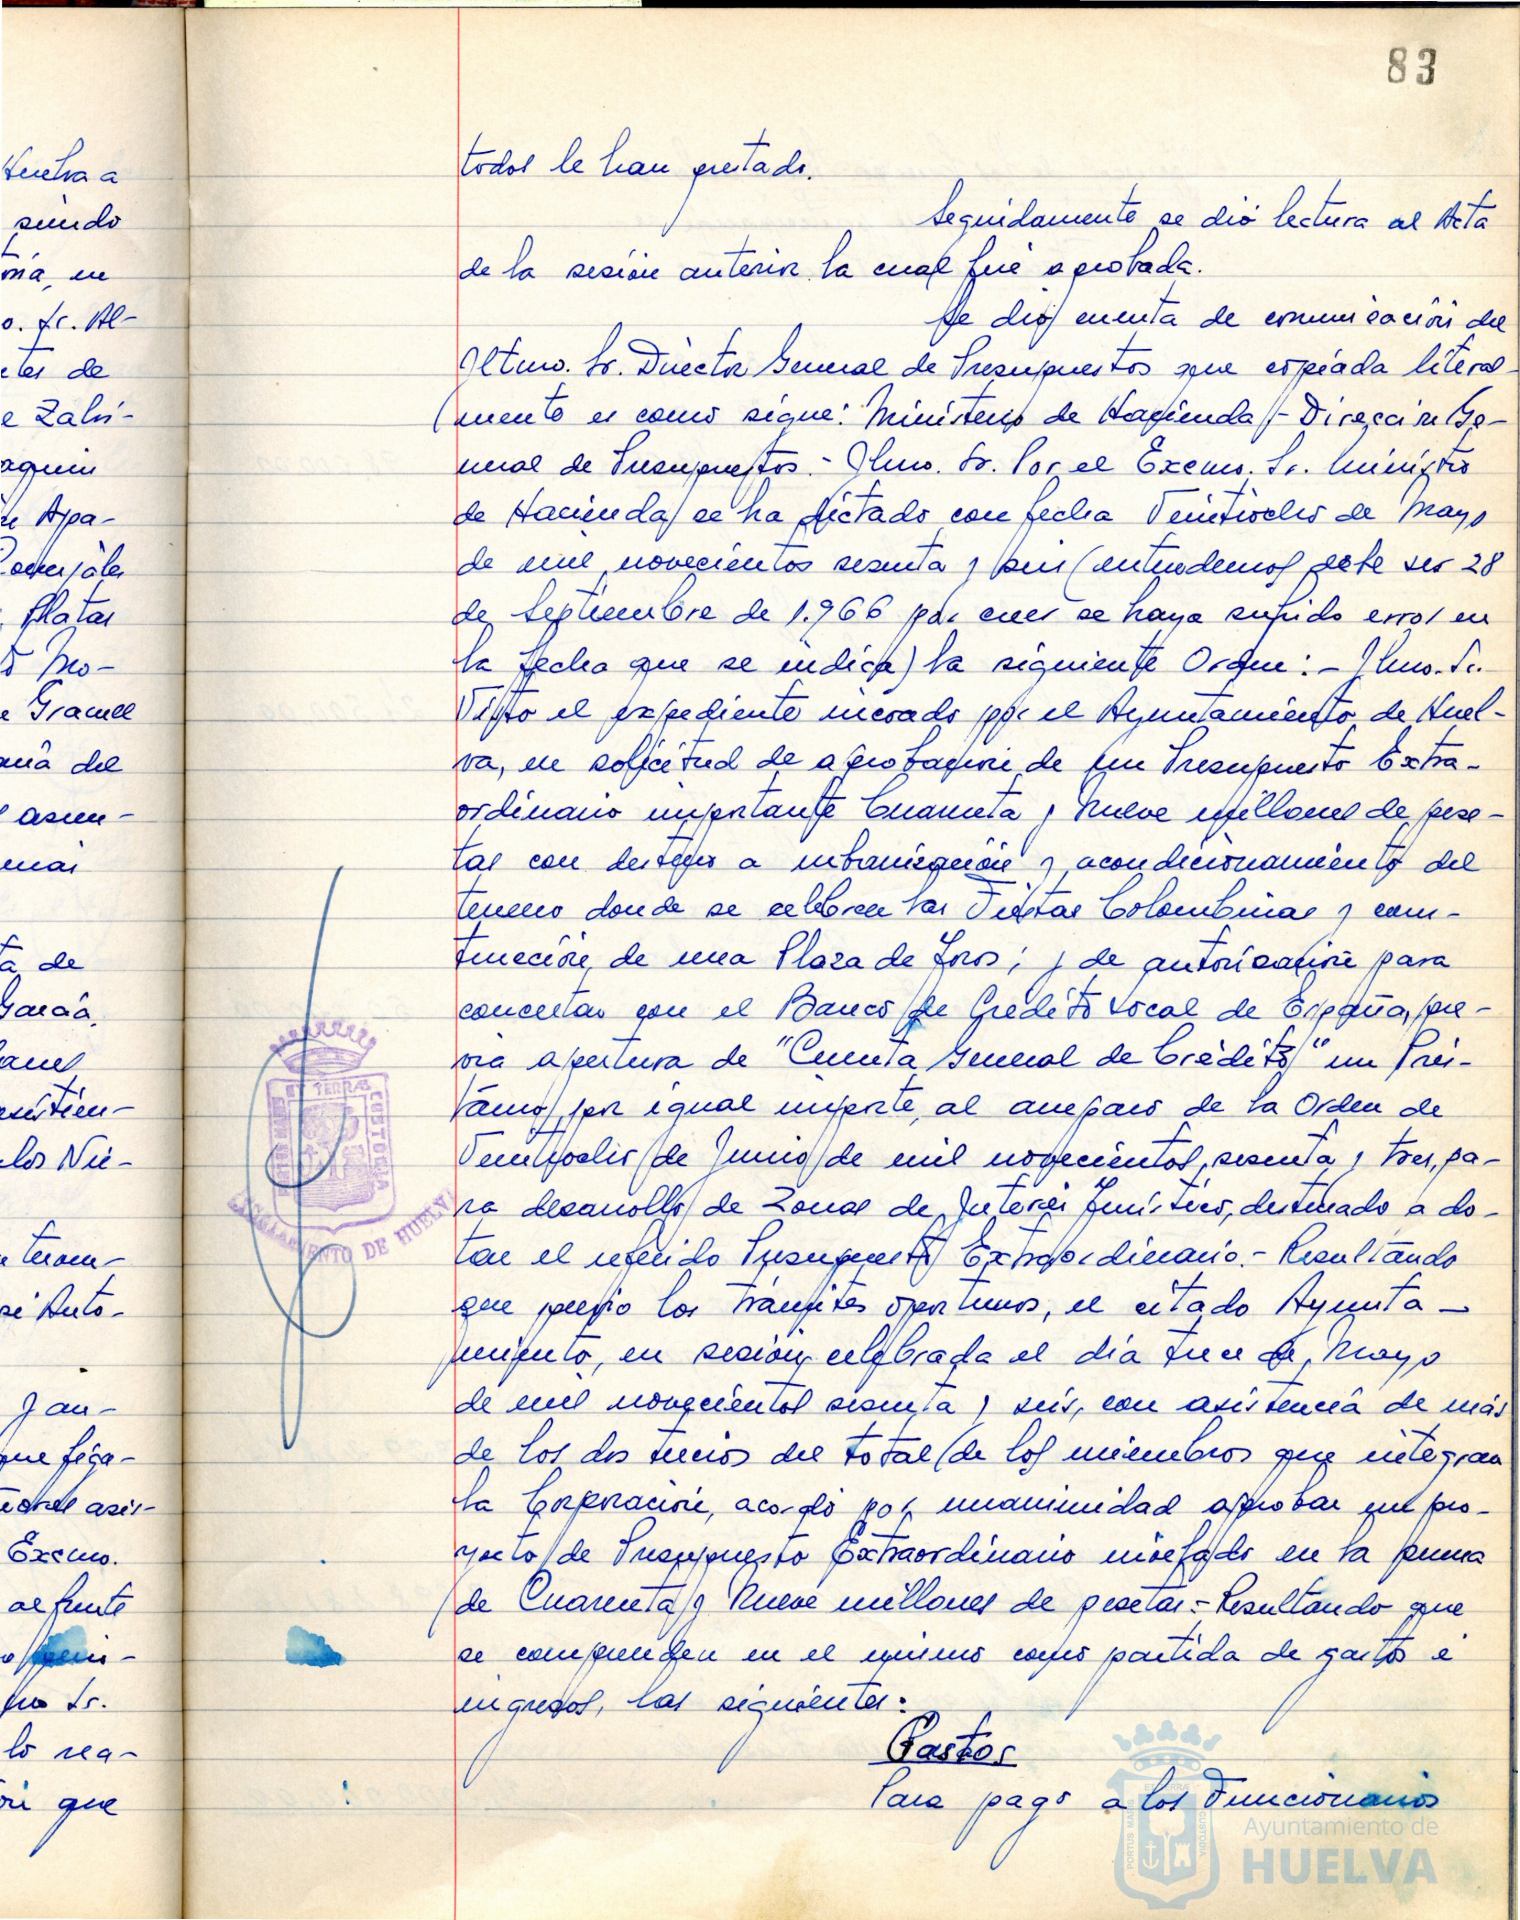 83
Huelva a
siendo
ria, en
o. Sr. Al-
ntes de
e Zalvi-
aquin
Apa-
Conrjales
Platas
Mo-
Gracell
del
asun-
mas
ta de
García
anel
asistien-
los Nie-
sé Anto-
Jan-
que figa-
asis-
Excmo.
al frente
mo Sr.
lo rea-
que
todos le han prestado.
Seguidamente se dió lectura al Acta
de la sesión anterior la cual fué aprobada.
Se dió cuenta de comunicación del
Iltmo. Sr. Director General de Presupuestos que copiada literal-
mente es como sigue: Ministerio de Hacienda.- Dirección Ge-
neral de Presupuestos.- Ilmo. Sr. Por el Excmo. Sr. Ministro
de Hacienda se ha dictado con fecha Veintiocho de Mayo
de mil novecientos sesenta y seis (entendemos debe ser 28
de Septiembre de 1.966 por creer se haya sufrido error en
la fecha que se indica) la siguiente Orden:- Ilmo. Sr.
Visto el expediente incoado por el Ayuntamiento de Huel-
va, en solicitud de aprobación de un Presupuesto Extra-
ordinario importante Cuarenta y Nueve millones de pese-
tas con destino a urbanización y acondicionamiento del
terreno donde se celebren las Fiestas Colombinas y cons-
trucción de una Plaza de Toros; y de autorización para
concertar con el Banco de Crédito Local de España, pre-
via apertura de "Cuenta General de Crédito" un Prés-
tamo, por igual importe, al amparo de la Orden de
Veintiocho de Junio de mil novecientos sesenta y tres, pa-
ra desarrollo de Zonas de Interés Turístico, destinado a do-
tar el referido Presupuesto Extraordinario.- Resultando
que previo los trámites oportunos, el citado Ayunta-
miento, en sesión celebrada el día trece de Mayo
de mil novecientos sesenta y seis, con asistencia de más
de los dos tercios del total de los miembros que integran
la Corporación, acordó por unanimidad aprobar un pro-
yecto de Presupuesto Extraordinario nivelado en la suma
de Cuarenta y Nueve millones de pesetas.- Resultando que
se comprenden en el mismo como partida de gastos é
ingresos, las siguientes:
Gastos
Para pago a los Funcionarios
PORTUS MARIS ET TERRAE CUSTODIA
EXCMO. AYUNTAMIENTO DE HUELVA
PORTUS MARIS ET TERRAE CUSTODIA
Ayuntamiento de
HUELVA